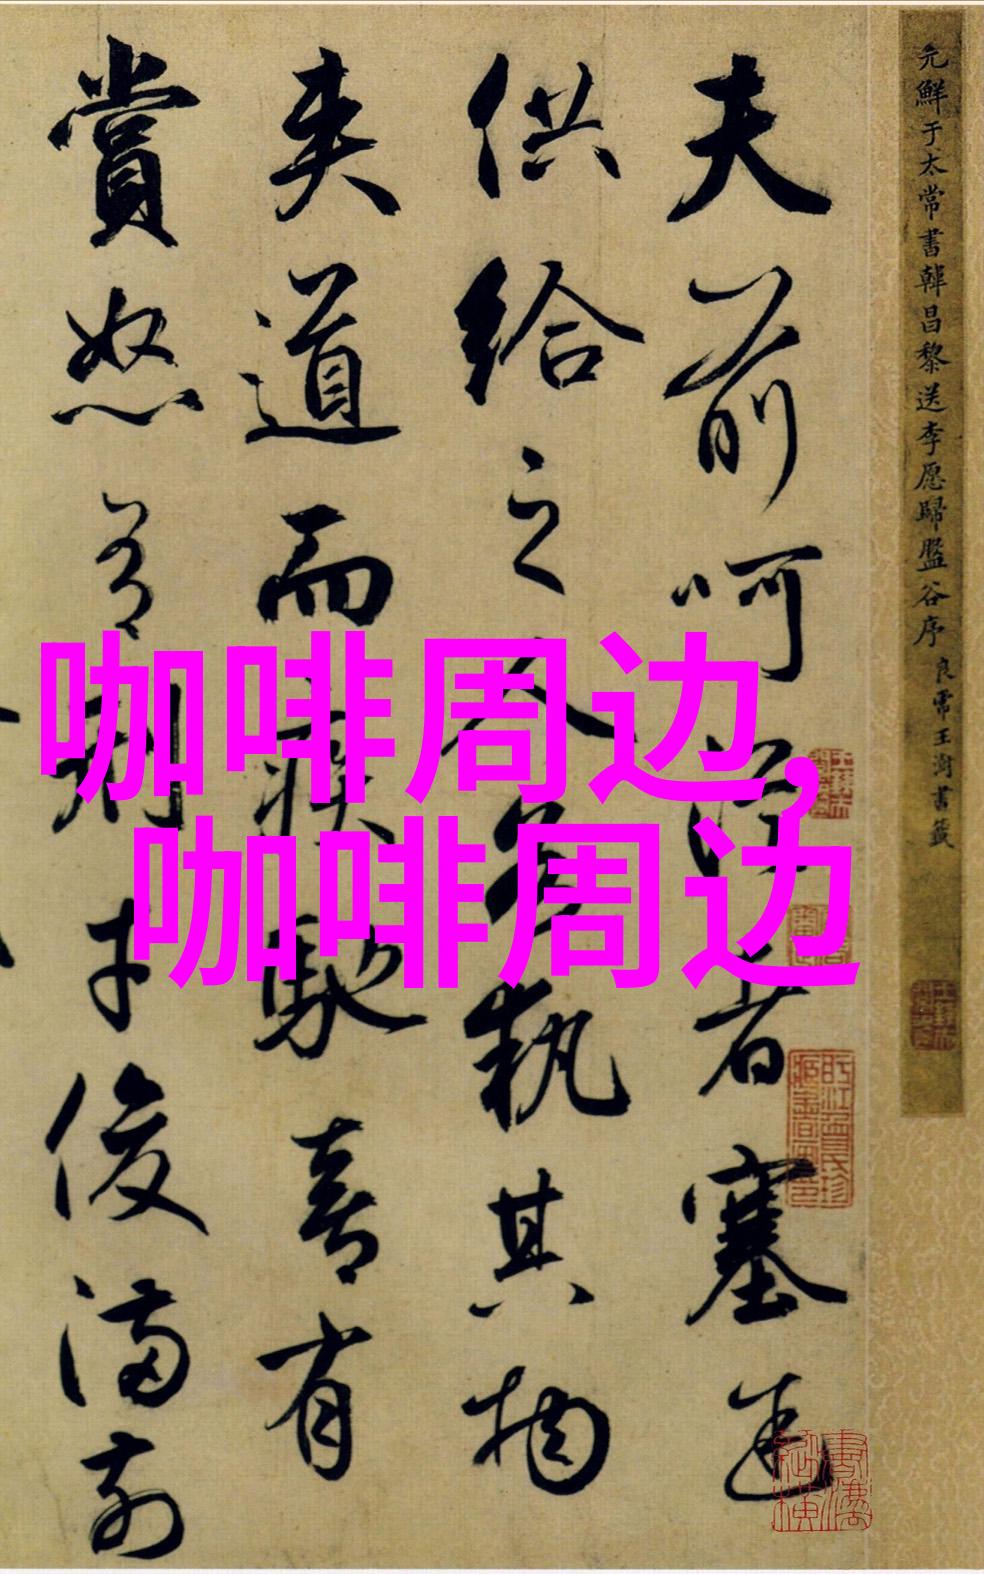 元鮮于太常書韓昌黎送李愿歸盤谷序 良常王澍書籤
夫前呵從者塞途
供給之人各執其物
夾道而疾馳喜有
賞怒有刑才俊滿前
咖啡周边,
咖啡周边